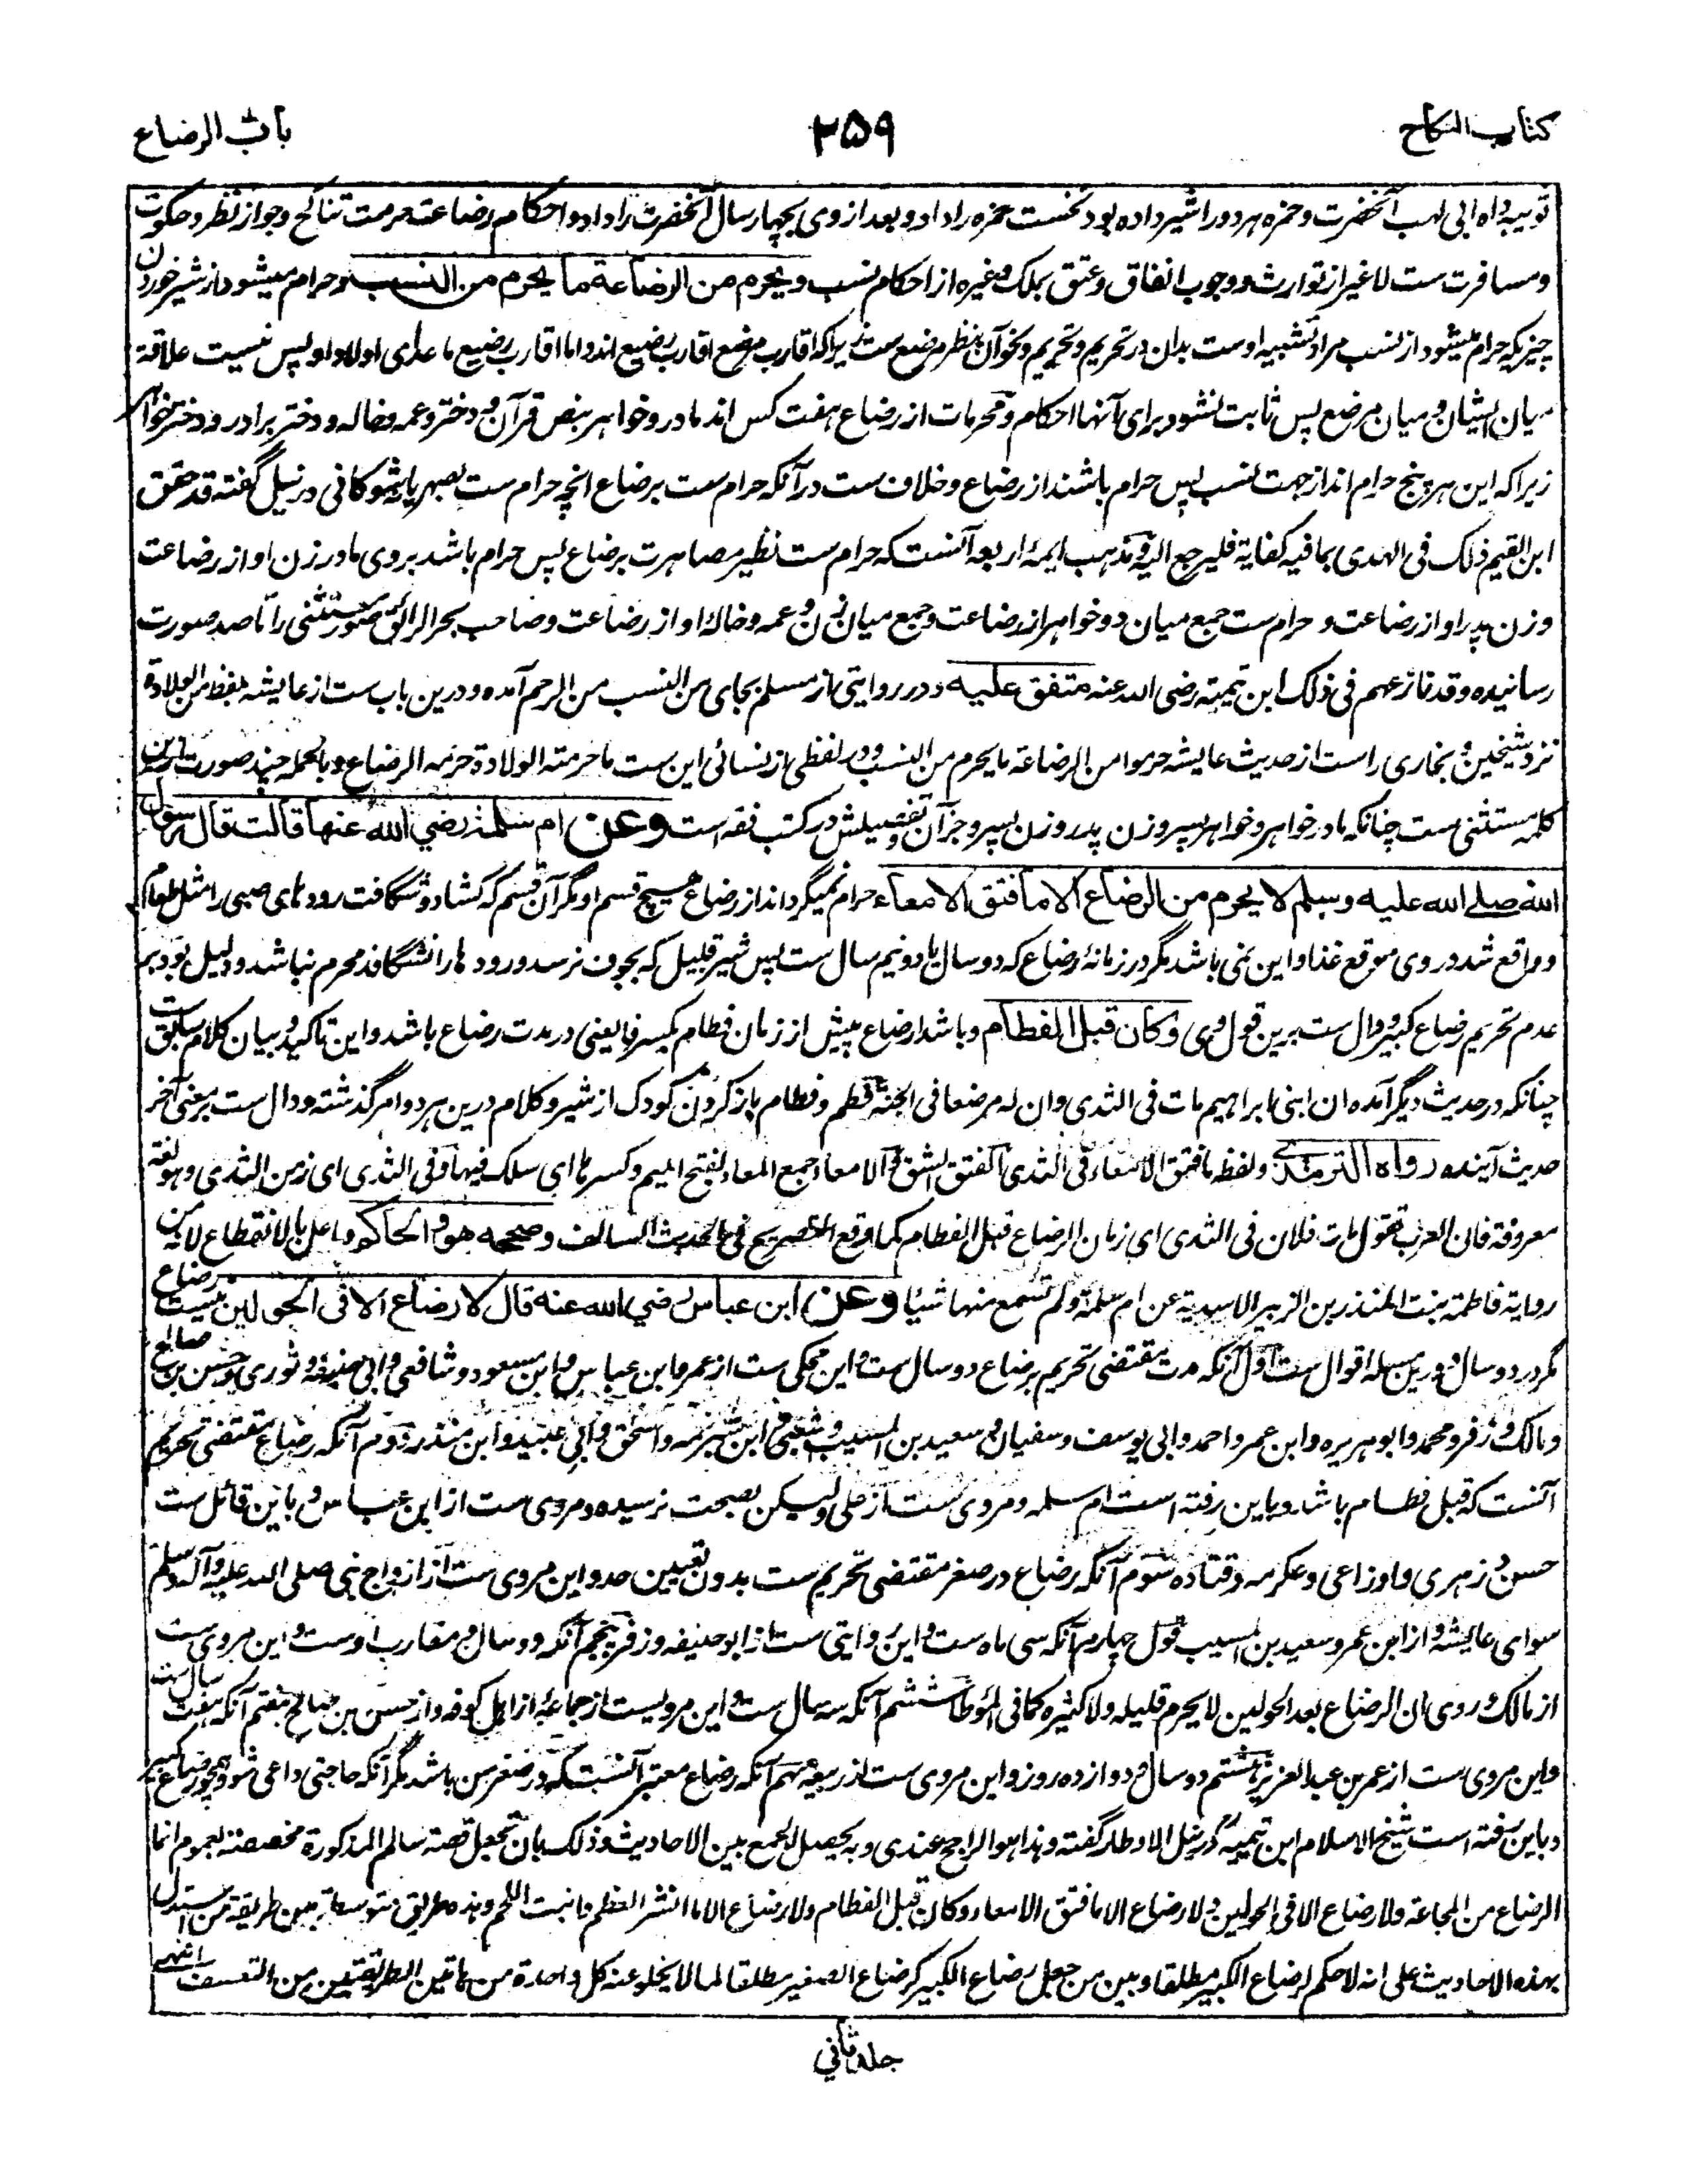 کتاب النکاح
۲۵۹
باب الرضاع
ثویبه داه ابی لهب آنحضرت و حمزه هر دو را شیر داده بود نخست حمزه را داد و بعد از وی بچهار سال آنحضرت را داد و احکام رضاعت حرمت تناکح و جواز نظر و خلوت
و مسافرت ست لا غیر از توارث و وجوب انفاق و عتق بملک و غیره از احکام نسب ویحرم من الرضاعة ما یحرم من النسب و حرام میشود از شیر خوردن
چیزیکه حرام میشود از نسب مراد تشبیه اوست بدان در تحریم و تحریم و نحو آن بنظر مرضع ست زیرا که اقارب مرضع اقارب رضیع اند و اما اقارب رضیع ما عدای اولاد او پس نیست علاقة
میان ایشان و میان مرضع پس ثابت نشود برای آنها احکام و محرمات از رضاع هفت کس اند مادر و خواهر بنص قرآن و دختر و عمه و خاله و دختر برادر و دختر خواهر
زیرا که این هر پنج حرام اند از جهت نسب پس حرام باشند از رضاع و خلاف ست در آنکه حرام ست برضاع انچه حرام ست بصهر یا نه شوکانی در نیل گفته قد حقق
ابن القیم ذلک فی الهدی بما فیه کفایة فلیرجع الیه و مذهب ایمهٔ اربعه آنست که حرام ست نظیر مصاهرت برضاع پس حرام باشد بروی مادر زن او از رضاعت
و زن پدر او از رضاعت و حرام ست جمع میان دو خواهر از رضاعت و جمع میان زن و عمه و خالهٔ او از رضاعت و صاحب بحر الرائق صور مستثنی را تا صد صورت
رسانیده و قد نازعهم فی ذلک ابن تیمیة رضی الله عنه متفق علیه و در روایتی از مسلم بجای من النسب من الرحم آمده و درین باب ست از عایشه بلفظ من الولادة
نزد شیخین و بخاری را ست از حدیث عایشه حرموا من الرضاعة ما یحرم من النسب و در لفظی از نسائی این ست ما حرمته الولادة حرمه الرضاع و بالجمله چند صورت ازین
کلمه مستثنی ست چنانکه مادر خواهر و خواهر پسر و زن پدر و زن پسر و جز آن و تفصیلش در کتب فقه است وعن ام سلمة رضی الله عنها قالت قال رسول
الله صلی الله علیه وسلم لا یحرم من الرضاع الا ما فتق الامعاء حرام نمیگرداند از رضاع هیچ قسم او مگر آن قسم که کشاد و شگافت روده‌های صبی را مثل طعام
و واقع شد در وی موقع غذا و این نمی باشد مگر در زمانهٔ رضاع که دو سال یا دو نیم سال ست پس شیر قلیل که بجوف نرسد و روده‌ها را نشگافد محرم نباشد و دلیل بود بر
عدم تحریم رضاع کبیر و دال ست برین قول وی وکان قبل الفطام و باشد ارضاع پیش از زمان فطام بکسر فا یعنی در مدت رضاع باشد و این تاکید و بیان کلام سابق ست
چنانکه در حدیث دیگر آمده ان ابنی ابراهیم مات فی الثدی وان له مرضعا فی الجنة و فطم و فطام باز کردن کودک از شیر و کلام درین هر دو امر گذشته و دال ست بر معنی آخر
حدیث آینده رواه الترمذی ولفظه ما فتق الامعاء فی الثدی الفتق الشق والامعاء جمع المعاء بفتح المیم و کسرها ای سلک فیها وفی الثدی ای زمن الثدی وهو لغة
معروفة فان العرب تقول مات فلان فی الثدی ای زمان الرضاع قبل الفطام کما وقع التصریح فی الحدیث السالف وصححه هو والحاکم واعل بالانقطاع لانه من
روایة فاطمة بنت المنذر بن الزبیر الاسدیة عن ام سلمة ولم تسمع منها شیئا وعن ابن عباس رضی الله عنه قال لا رضاع الا فی الحولین نیست رضاع
مگر در دو سال و درین مسله اقوال ست اول آنکه مدت مقتضی تحریم برضاع دو سال ست و این محکی ست از عمر و ابن عباس و ابن مسعود و شافعی و ابی حنیفه و ثوری و حسن بن صالح
و مالک و زفر و محمد و ابو هریره و ابن عمر و احمد و ابی یوسف و سفیان و سعید بن المسیب و شعبی و ابن شبرمه و اسحق و ابی عبید و ابن منذر دوم آنکه رضاع مقتضی تحریم
آنست که قبل فطام باشد و باین رفته است ام سلمه و مروی ست از علی و لیکن بصحت نرسیده و مروی ست از ابن عباس و باین قائل ست
حسن و زهری و اوزاعی و عکرمه و قتاده سوم آنکه رضاع در صغر مقتضی تحریم ست بدون تعیین حد و این مروی ست از ازواج نبی صلی الله علیه وآله وسلم
سوای عایشه و از ابن عمر و سعید بن المسیب قول چهارم آنکه سی ماه ست و این روایتی ست از ابو حنیفه و زفر پنجم آنکه دو سال و مقارب اوست و این مروی ست
از مالک و روی ان الرضاع بعد الحولین لا یحرم قلیله ولا کثیره کما فی الموطا ششم آنکه سه سال ست و این مرویست از جماعهٔ از اهل کوفه و از حسن بن صالح هفتم آنکه هفت سال ست
و این مروی ست از عمر بن عبد العزیز هشتم دو سال و دوازده روز و این مروی ست از ربیعه نهم آنکه رضاع معتبر آنست که در صغر سن باشد مگر آنکه حاجتی داعی شود همچو رضاع کبیر
و باین رفته است شیخ الاسلام ابن تیمیه در نیل الاوطار گفته و هذا هو الراجح عندی و به یحصل الجمع بین الاحادیث و ذلک بان تجعل قصة سالم المذکورة مخصصة لعموم انما
الرضاع من المجاعة ولا رضاع الا فی الحولین ولا رضاع الا ما فتق الامعاء وکان قبل الفطام ولا رضاع الا ما انشر العظم وانبت اللحم وهذه طریق متوسطة بین طریقة من استدل
بهذه الاحادیث علی انه لا حکم لرضاع الکبیر مطلقا وبین من جعل رضاع الکبیر کرضاع الصغیر مطلقا لما لا یخلو عنه کل واحدة من هاتین الطریقتین من التعسف انتهی
جلد ثانی